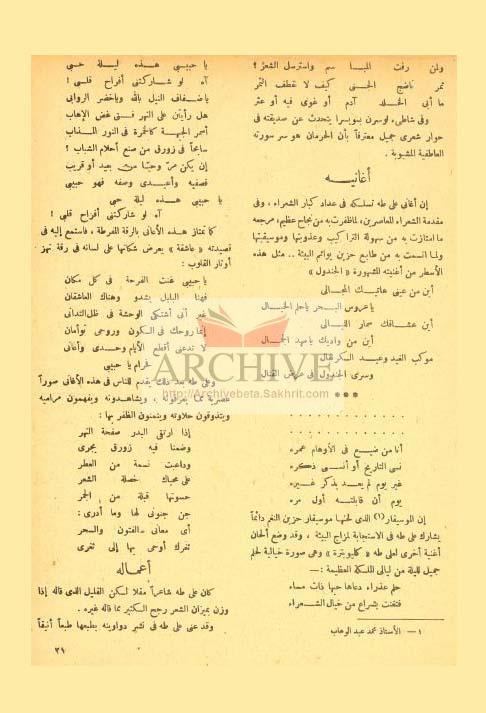 ولمن رفت المبا سم واسترسل الشعر ؟
ثمر ناضج الجنى كيف لا تقطف الثمر
ما أبى الخلد آدم أو غوى فيه أو عثر
وفى شاطىء لوسرن بسويسرا يتحدث عن صديقته فى
حوار شعرى جميل معترفاً بأن الحرمان هو سر سورته
العاطفية المشبوبة .
أغانيه
إن أغانى على طه تسلكه فى عداد كبار الشعراء ، وفى
مقدمة الشعراء المعاصرين، لما ظفرت به من نجاح عظيم، مرجعه
ما امتازت به من سهولة التراكيب وعذوبتها وموسيقيتها
ولما اتسمت به من طابع حزين يوائم البيئة .. مثل هذه
الأسطر من أغنيته المشهورة « الجندول »
أين من عينى هاتيك المجالى
يا عروس البحر يا حلم الخيال
أين عشاقك سمار الليالى
أين من واديك يا مهد الجمال
موكب الغيد وعيد الكرنفال
وسرى الجندول فى عرض القنال
***
. . . . . . . . . . . .
. . . . . . . . . . . .
أنا من ضيع فى الأوهام عمره
نسى التاريخ أو أنسى ذكره
غير يوم لم يعد يذكر غيره
يوم أن قابلته أول مره
إن الموسيقار (١) الذى لحنها موسيقار حزين النغم دائماً
يشارك على طه فى الاستجابة لمزاج البيئة ، وقد وضع ألحان
أغنية أخرى لعلى طه « كليوبترة » وهى صورة خيالية لحلم
جميل لليلة من ليالى الملكة العظيمة :—
حلم عذراء دعاها حبها ذات مساء
فتغنت بشراع من خيال الشعراء
١ — الأستاذ محمد عبد الوهاب
يا حبيبى هذه ليلة حبى
آه لو شاركتنى أفراح قلبى !
يا ضفاف النيل بالله ويا خضر الروابى
هل رأيتن على النهر فتى غض الإهاب
أسمر الجبهة كالخمرة فى النور المذاب
سابحاً فى زورق من صنع أحلام الشباب ؟
إن يكن مر وحيا من بعيد أو قريب
فصفيه وأعيدى وصفه فهو حبيبى
يا حبيبى هذه ليلة حبى
آه لو شاركتنى أفراح قلبى !
كما تمتاز هذه الأغانى بالرقة المفرطة ، فاستمع إليه فى
قصيدته « عاشقة » يعرض شكاتها على لسانه فى رقة تهز
أوتار القلوب :
يا حبيبى غنت الفرحة فى كل مكان
فهنا البلبل يشدو وهناك العاشقان
غير أنى أشتكى الوحشة فى ظل التدانى
إنما روحك فى الكون وروحى توأمان
لا تدعنى أقطع الأيام وحدى وأغانى
حرام يا حبيبى
وعلى طه بعد ذلك يقدم للناس فى هذه الأغانى صوراً
عصرية مما يعرفونه ، ويشاهدونه ويفهمون مراميه
ويتذوقون حلاوته ويتمنون الظفر بها :
إذا ارتقى البدر صفحة النهر
وضمنا فيه زورق يجرى
وداعبت نسمة من العطر
على محياك خصلة الشعر
حسوتها قبلة من الجمر
جن جنونى لها وما أدرى :
أى معانى الفتون والسحر
ثغرك أوحى بها إلى ثغرى
أعماله
كان على طه شاعراً مقلا لكن القليل الذى قاله إذا
وزن بميزان الشعر رجح الكثير مما قاله غيره .
وقد عنى على طه فى نشر دواوينه بطبعها طبعاً أنيقاً
٢١
ARCHIVE
http://Archivebeta.Sakhrit.com